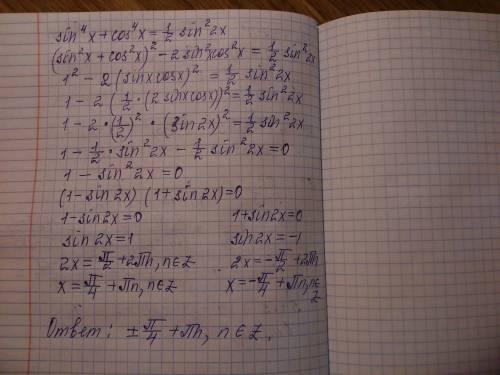 sin⁴x + cos⁴x = 1/2 sin²2x
(sin²x + cos²x)² - 2sin²xcos²x = 1/2 sin²2x
1² - 2(sinxcosx)² = 1/2 sin²2x
1 - 2(1/2·(2sinxcosx))² = 1/2 sin²2x
1 - 2·(1/2)²·(sin2x)² = 1/2 sin²2x
1 - 1/2·sin²2x - 1/2 sin²2x = 0
1 - sin²2x = 0
(1 - sin2x)(1 + sin2x) = 0
1 - sin2x = 0 1 + sin2x = 0
sin2x = 1 sin2x = -1
2x = π/2 + 2πn, n∈Z 2x = -π/2 + 2πn
x = π/4 + πn, n∈Z x = -π/4 + πn, n∈Z
Ответ: ± π/4 + πn, n∈Z.